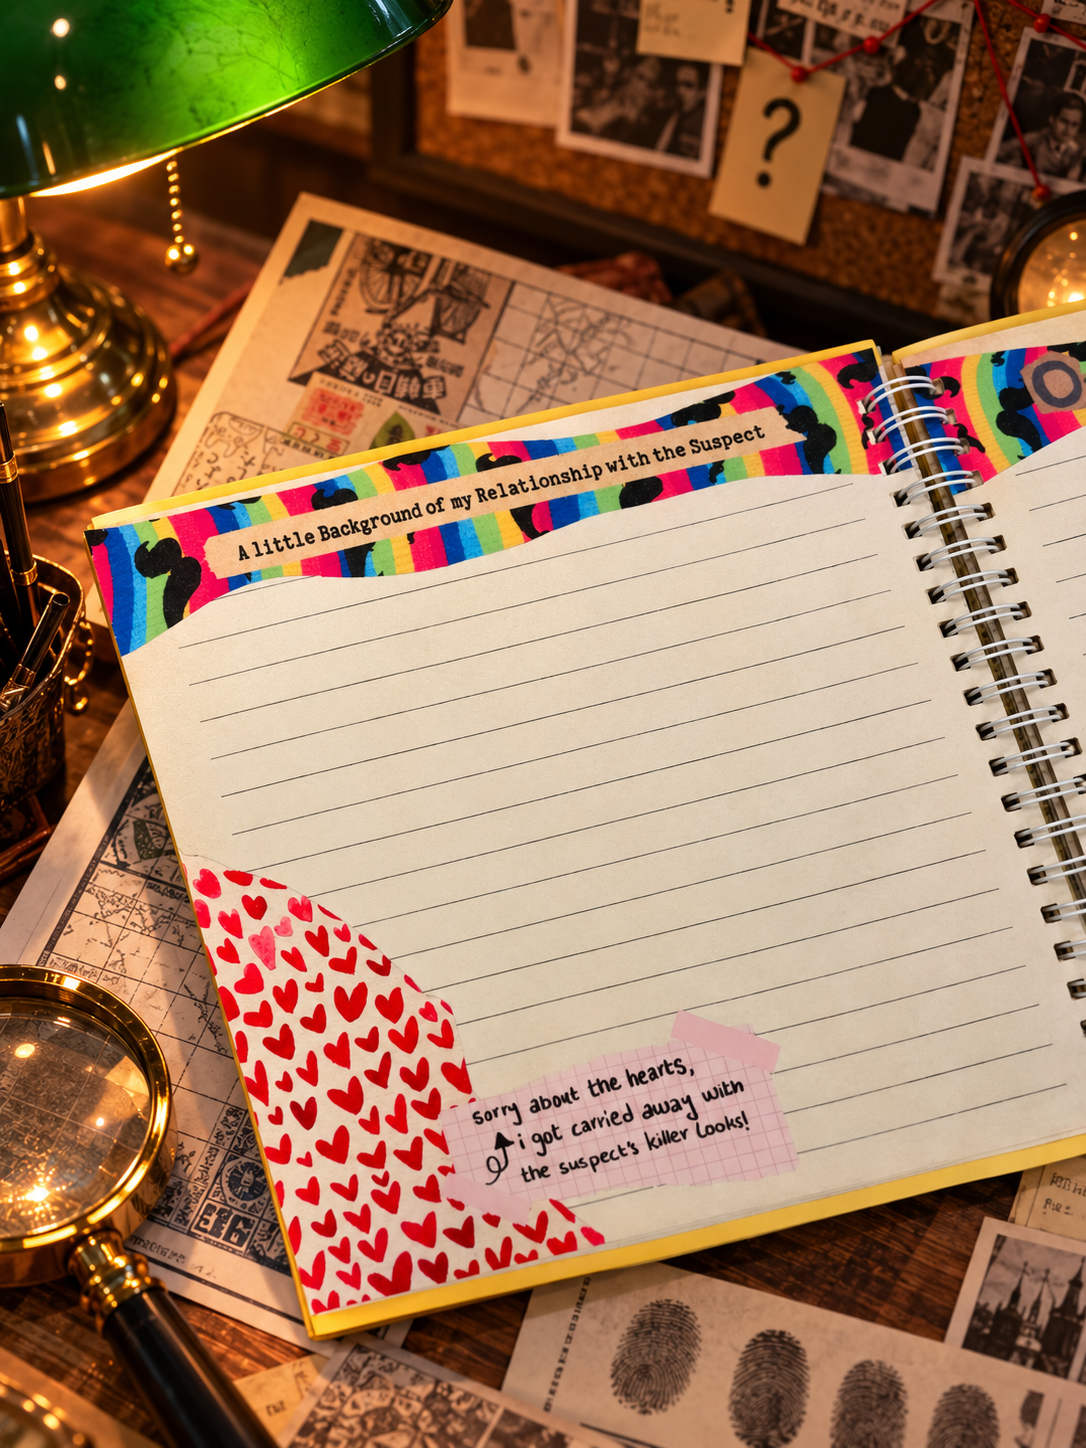 ?
A little Background of my Relationship with the Suspect
sorry about the hearts,
i got carried away with
the suspect's killer looks!